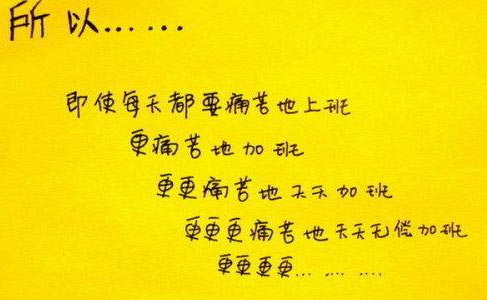 所以......
即使每天都要痛苦地上班
更痛苦地加班
更更痛苦地天天加班
更更更痛苦地天天无偿加班
更更更更... ... ....